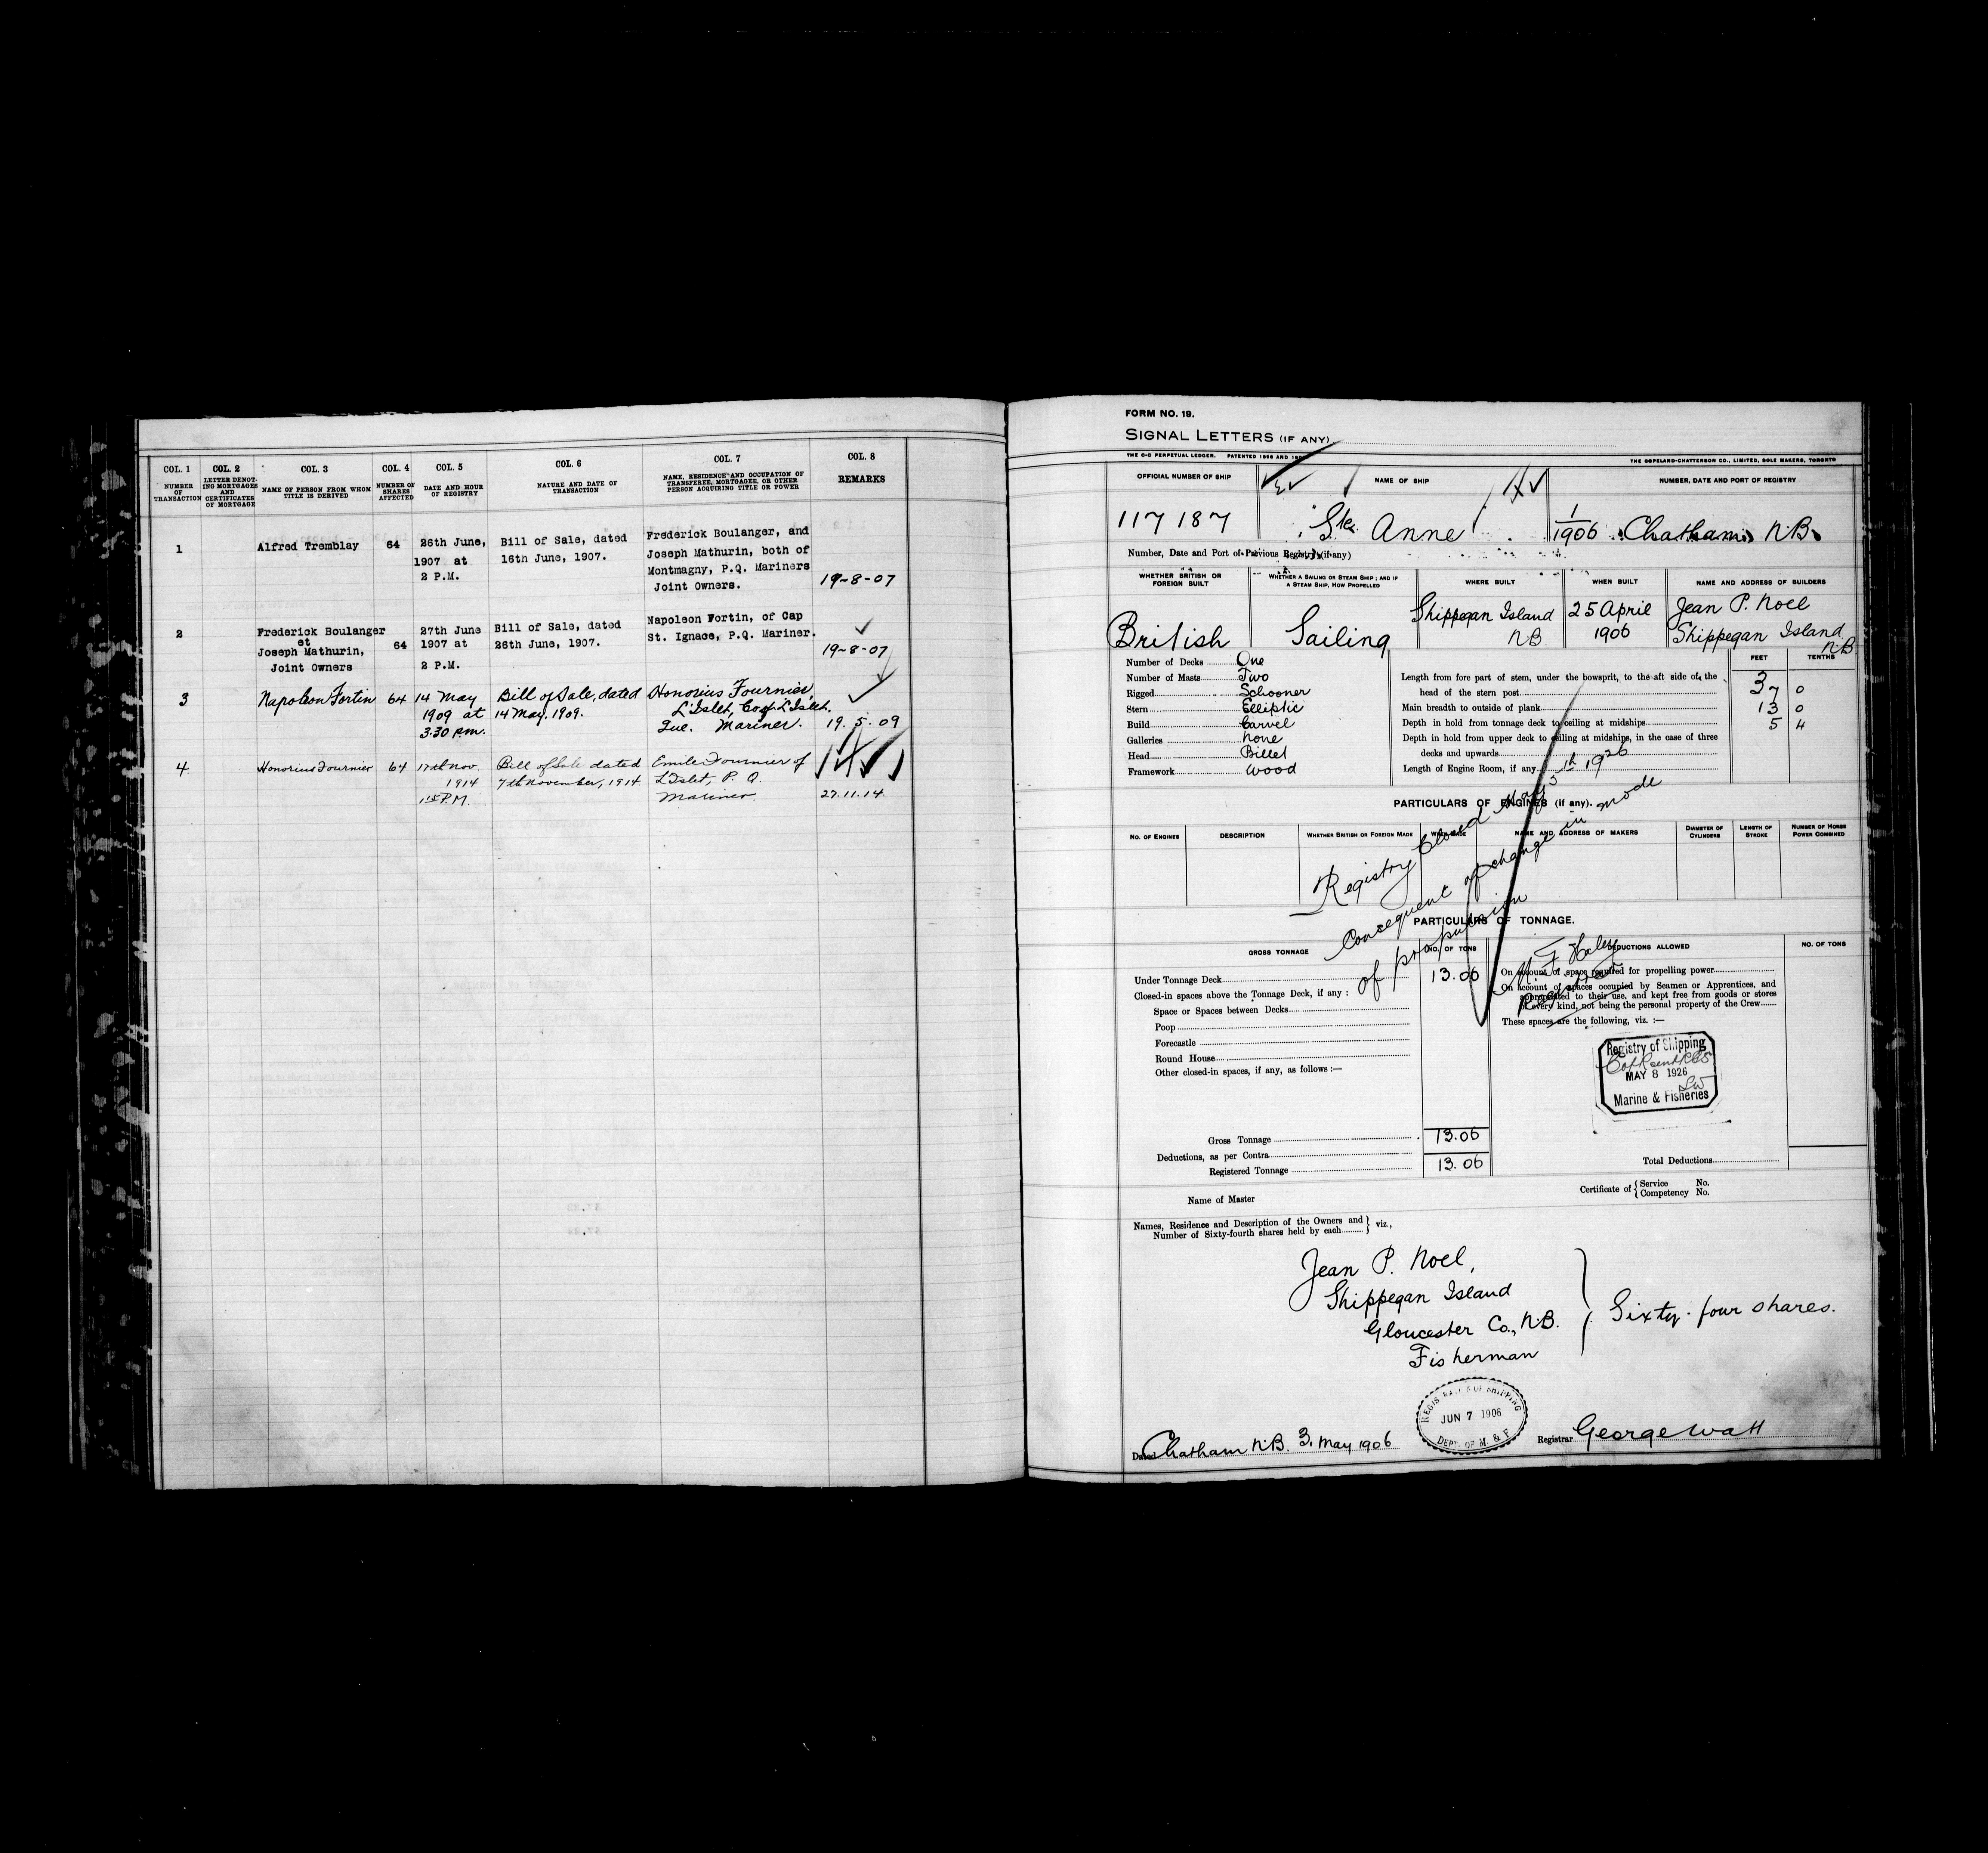 COL. 1
NUMBER
OF
TRANSACTION
COL. 2
LETTER DENOT-
ING MORTGAGES
AND
CERTIFICATES
OF MORTGAGE
COL. 3
NAME OF PERSON FROM WHOM
TITLE IS DERIVED
COL. 4
NUMBER OF
SHARES
AFFECTED
COL. 5
DATE AND HOUR
OF REGISTRY
COL. 6
NATURE AND DATE OF
TRANSACTION
COL. 7
NAME, RESIDENCE AND OCCUPATION OF
TRANSFEREE, MORTGAGEE, OR OTHER
PERSON ACQUIRING TITLE OR POWER
COL. 8
REMARKS
1
Alfred Tremblay
64
26th June,
1907 at
2 P.M.
Bill of Sale, dated
16th June, 1907.
Frederick Boulanger, and
Joseph Mathurin, both of
Montmagny, P.Q. Mariners
Joint Owners.
19-8-07
2
Frederick Boulanger
et
Joseph Mathurin,
Joint Owners
64
27th June
1907 at
2 P.M.
Bill of Sale, dated
26th June, 1907.
Napoleon Fortin, of Cap
St. Ignace, P.Q. Mariner.
19-8-07
3
Napoleon Fortin
64
14 May
1909 at
3.30 p.m.
Bill of Sale, dated
14 May, 1909.
Honorius Fournier,
L'Islet, Co of L'Islet.
Que. Mariner.
19.5.09
4
Honorius Fournier
64
17th Nov.
1914
P.M.
Bill of Sale dated
7th November, 1914
Emile Fournier of
L'Islet, P. Q.
Mariner.
27.11.14
FORM NO. 19.
SIGNAL LETTERS (IF ANY)
THE C-C PERPETUAL LEDGER. PATENTED 1896 AND
THE COPELAND-CHATTERSON CO., LIMITED, SOLE MAKERS, TORONTO
OFFICIAL NUMBER OF SHIP
NAME OF SHIP
NUMBER, DATE AND PORT OF REGISTRY
117 187
"Ste. Anne"
1/1906 Chatham, N.B.
Number, Date and Port of Previous Registry (if any)
WHETHER BRITISH OR
FOREIGN BUILT
WHETHER A SAILING OR STEAM SHIP; AND IF
A STEAM SHIP, HOW PROPELLED
WHERE BUILT
WHEN BUILT
NAME AND ADDRESS OF BUILDERS
British
Sailing
Shippegan Island
NB
25 April
1906
Jean P. Noel
Shippegan Island
N.B
Number of Decks One
Number of Masts Two
Rigged Schooner
Stern Elliptic
Build Carvel
Galleries none
Head Billet
Framework wood
FEET TENTHS
Length from fore part of stem, under the bowsprit, to the aft side of the
head of the stern post 37 0
Main breadth to outside of plank 13 0
Depth in hold from tonnage deck to ceiling at midships 5 4
Depth in hold from upper deck to ceiling at midships, in the case of three
decks and upwards
Length of Engine Room, if any
PARTICULARS OF ENGINES (if any).
NO. OF ENGINES
DESCRIPTION
WHETHER BRITISH OR FOREIGN MADE
WHEN MADE
NAME AND ADDRESS OF MAKERS
DIAMETER OF
CYLINDERS
LENGTH OF
STROKE
NUMBER OF HORSE
POWER COMBINED
Registry Closed May 5th 1926
Consequent of change in mode
of propulsion
Registrar
PARTICULARS OF TONNAGE.
GROSS TONNAGE
NO. OF TONS
DEDUCTIONS ALLOWED
NO. OF TONS
Under Tonnage Deck 13.06
Closed-in spaces above the Tonnage Deck, if any :
Space or Spaces between Decks
Poop
Forecastle
Round House
Other closed-in spaces, if any, as follows :—
On account of space required for propelling power
On account of spaces occupied by Seamen or Apprentices, and
appropriated to their use, and kept free from goods or stores
of every kind, not being the personal property of the Crew
These spaces are the following, viz. :—
Registry of Shipping
MAY 8 1926
Marine & Fisheries
Gross Tonnage 13.06
Deductions, as per Contra
Registered Tonnage 13.06
Total Deductions
Name of Master
Certificate of { Service No.
Competency No.
Names, Residence and Description of the Owners and
Number of Sixty-fourth shares held by each } viz.,
Jean P. Noel,
Shippegan Island
Gloucester Co., N.B.
Fisherman
Sixty-four shares.
JUN 7 1906
DEPT. OF M & F
Dated Chatham N.B. 3, May 1906
Registrar George Watt